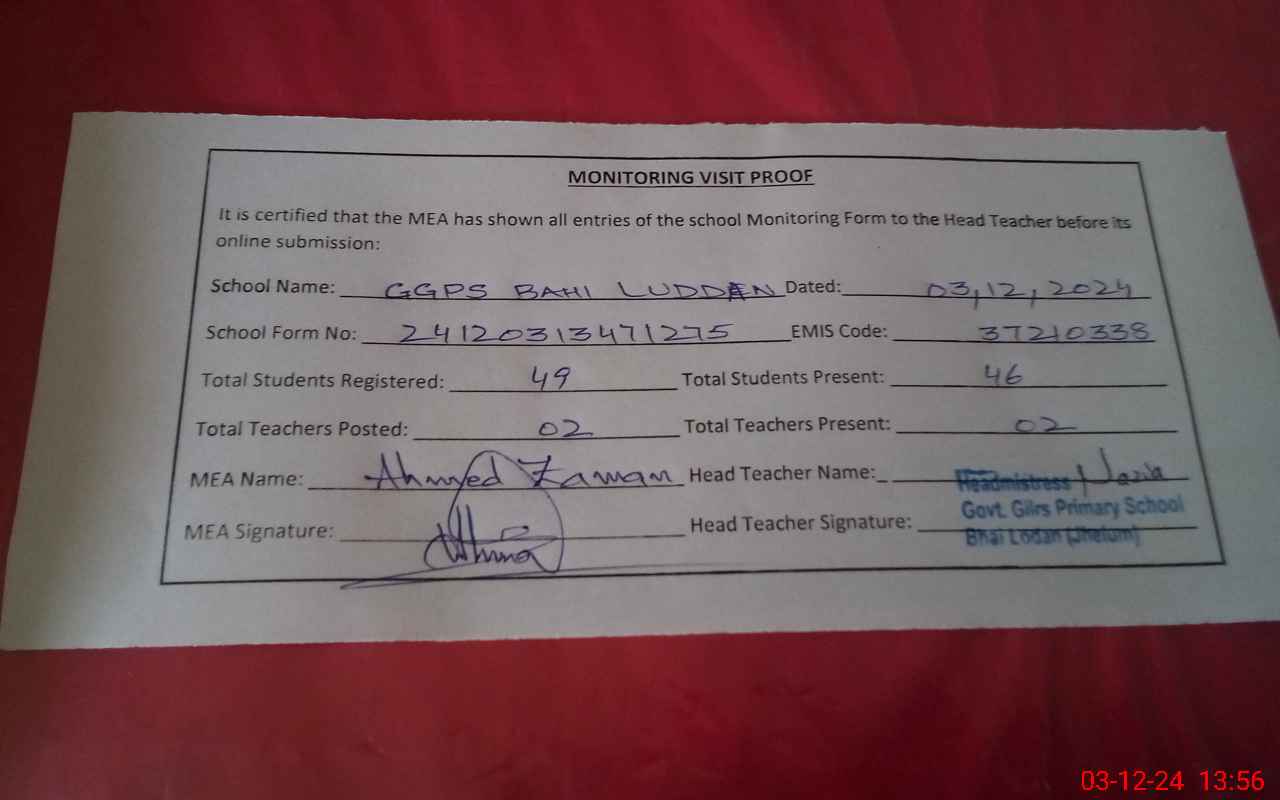 MONITORING VISIT PROOF
It is certified that the MEA has shown all entries of the school Monitoring Form to the Head Teacher before its
online submission:
School Name: GGPS BAHI LUDDAN Dated: 03,12,2024
School Form No: 24120313471275 EMIS Code: 37210338
Total Students Registered: 49 Total Students Present: 46
Total Teachers Posted: 02 Total Teachers Present: 02
MEA Name: Ahmed Zaman Head Teacher Name: Nazia
Headmistress
MEA Signature: Head Teacher Signature:
Govt. Gilrs Primary School
Bhai Lodan (Jhelum)
03-12-24 13:56